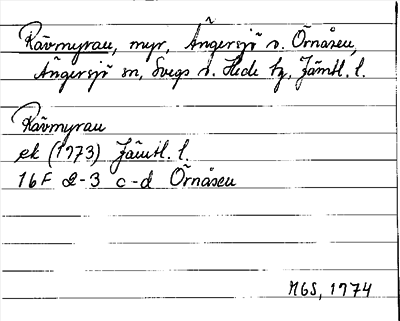 Rävmyran, myr, Ängersjö s. Örnåsen,
Ängersjö sn, Svegs o. Hede tg, Jämtl. l.
Rävmyran
ek (1973) Jämtl. l.
16F 2-3 c-d Örnåsen
MGS, 1974